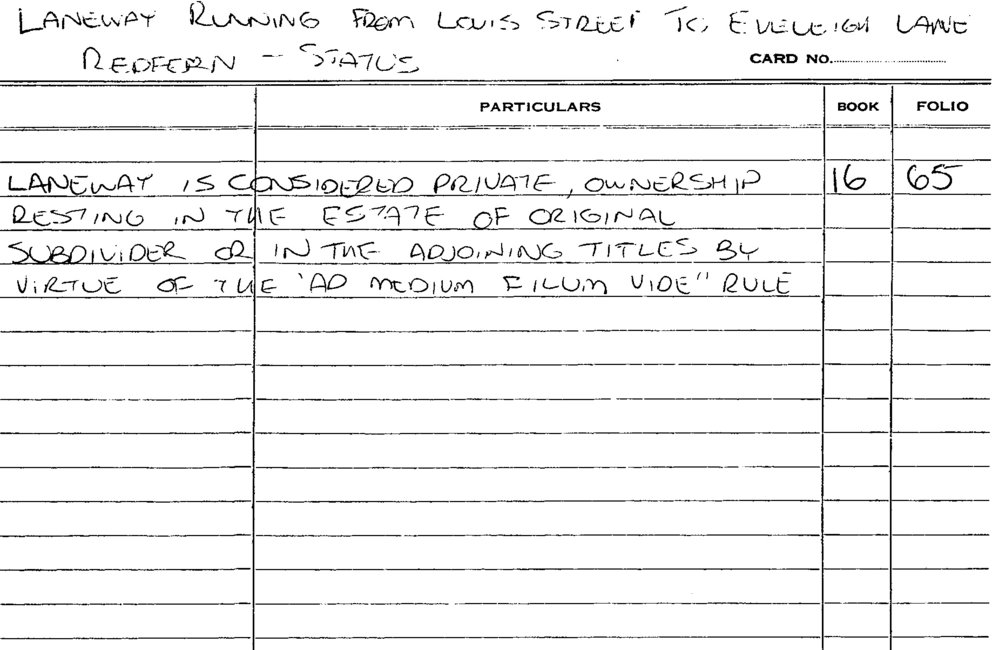 LANEWAY RUNNING FROM LOUIS STREET TO EVELEIGH LANE
REDFERN - STATUS
CARD NO.
PARTICULARS BOOK FOLIO
LANEWAY IS CONSIDERED PRIVATE, OWNERSHIP 16 65
RESTING IN THE ESTATE OF ORIGINAL
SUBDIVIDER OR IN THE ADJOINING TITLES BY
VIRTUE OF THE 'AD MEDIUM FILUM VIDE" RULE